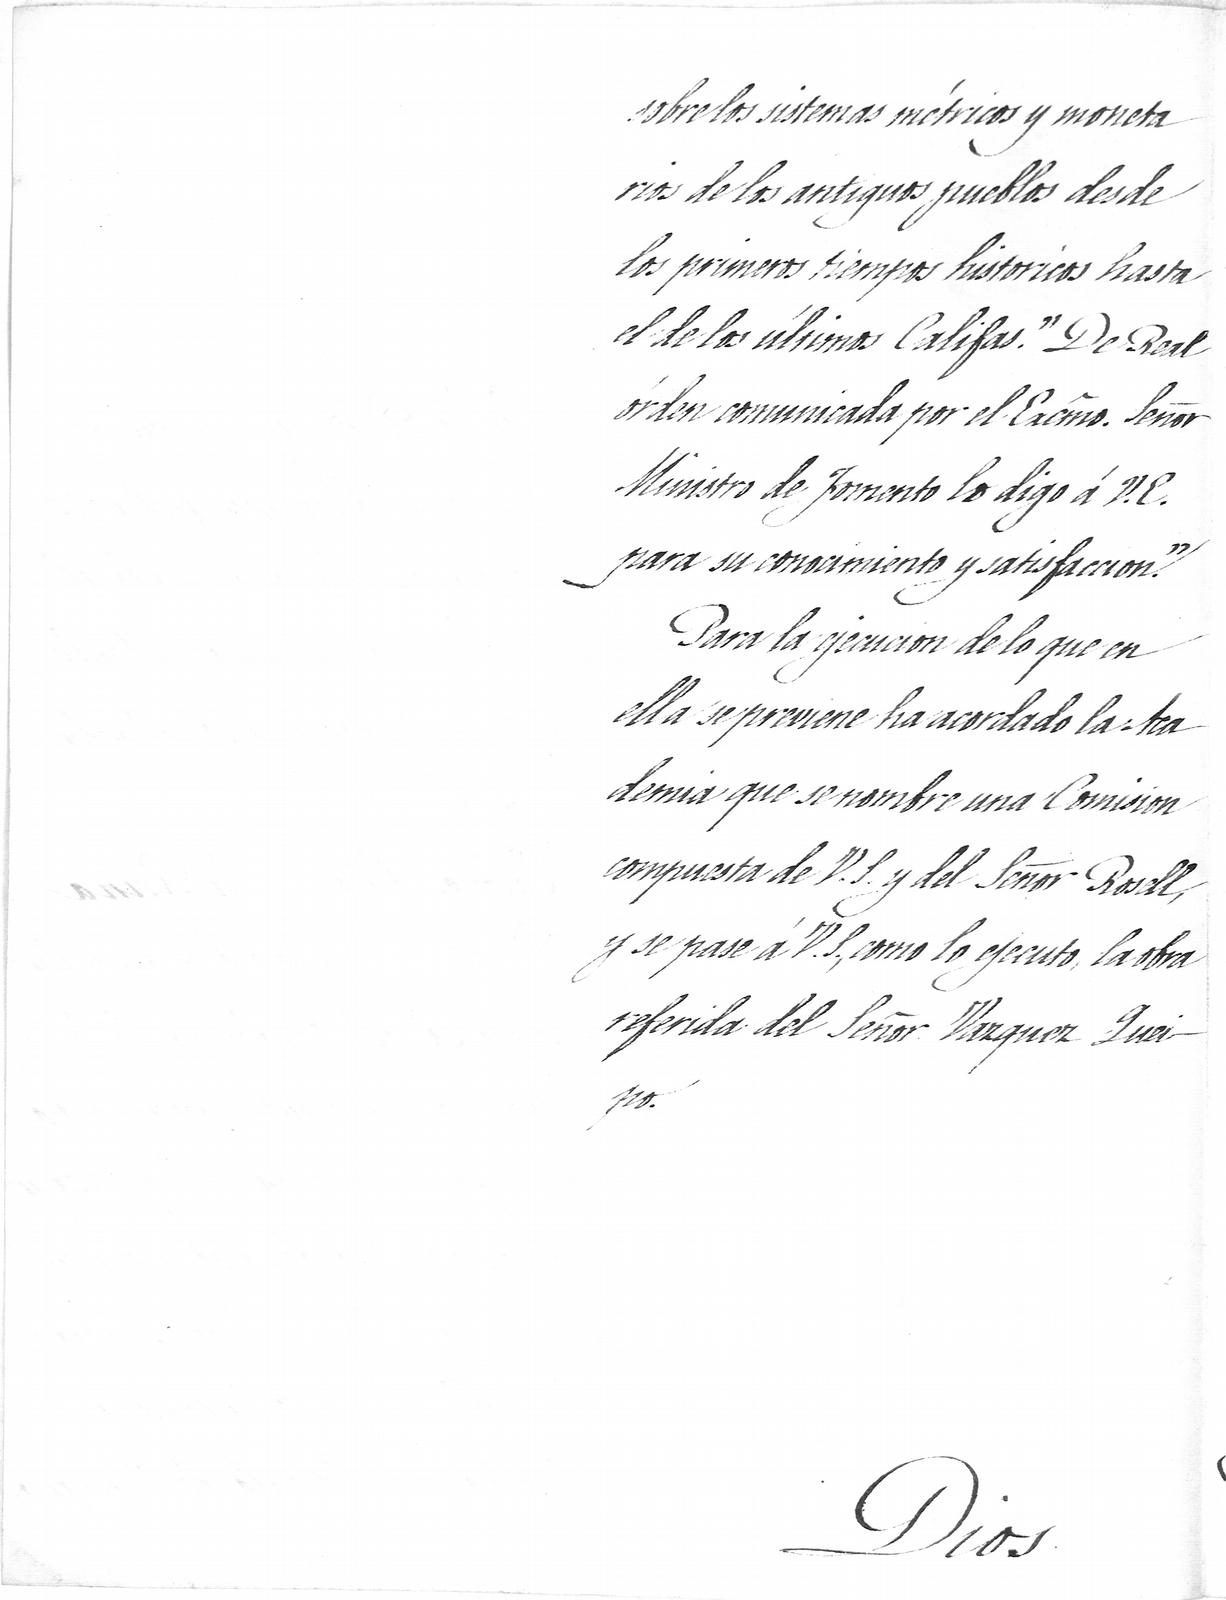 sobre los sistemas métricos y moneta
rios de los antiguos pueblos desde
los primeros tiempos historicos hasta
el de los últimos Califas." De Real
órden comunicada por el Excmo. Señor
Ministro de Fomento lo digo á V.E.
para su conocimiento y satisfaccion."
Para la ejecucion de lo que en
ella se previene ha acordado la Aca
demia que se nombre una Comision
compuesta de V.S. y del Señor Rosell,
y se pase á V.S., como lo ejecuto, la obra
referida del Señor Vazquez Quei-
po.
Dios